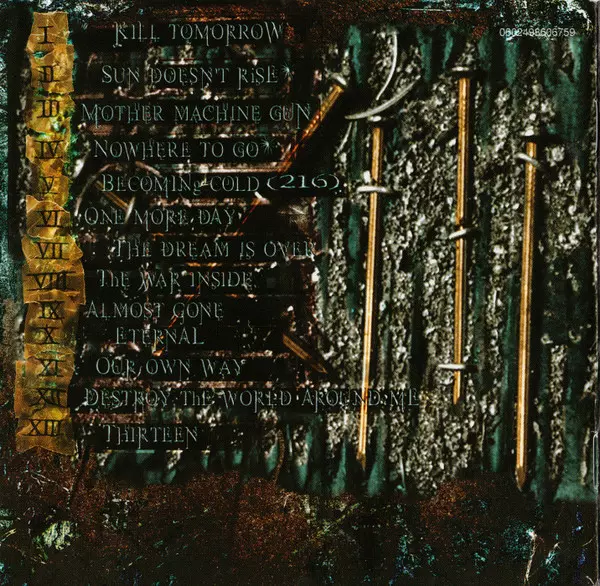 0602498606759
I KILL TOMORROW
II SUN DOESN'T RISE
III MOTHER MACHINE GUN
IV NOWHERE TO GO
V BECOMING COLD (216)
VI ONE MORE DAY
VII THE DREAM IS OVER
VIII THE WAR INSIDE
IX ALMOST GONE
X ETERNAL
XI OUR OWN WAY
XII DESTROY THE WORLD AROUND ME
XIII THIRTEEN